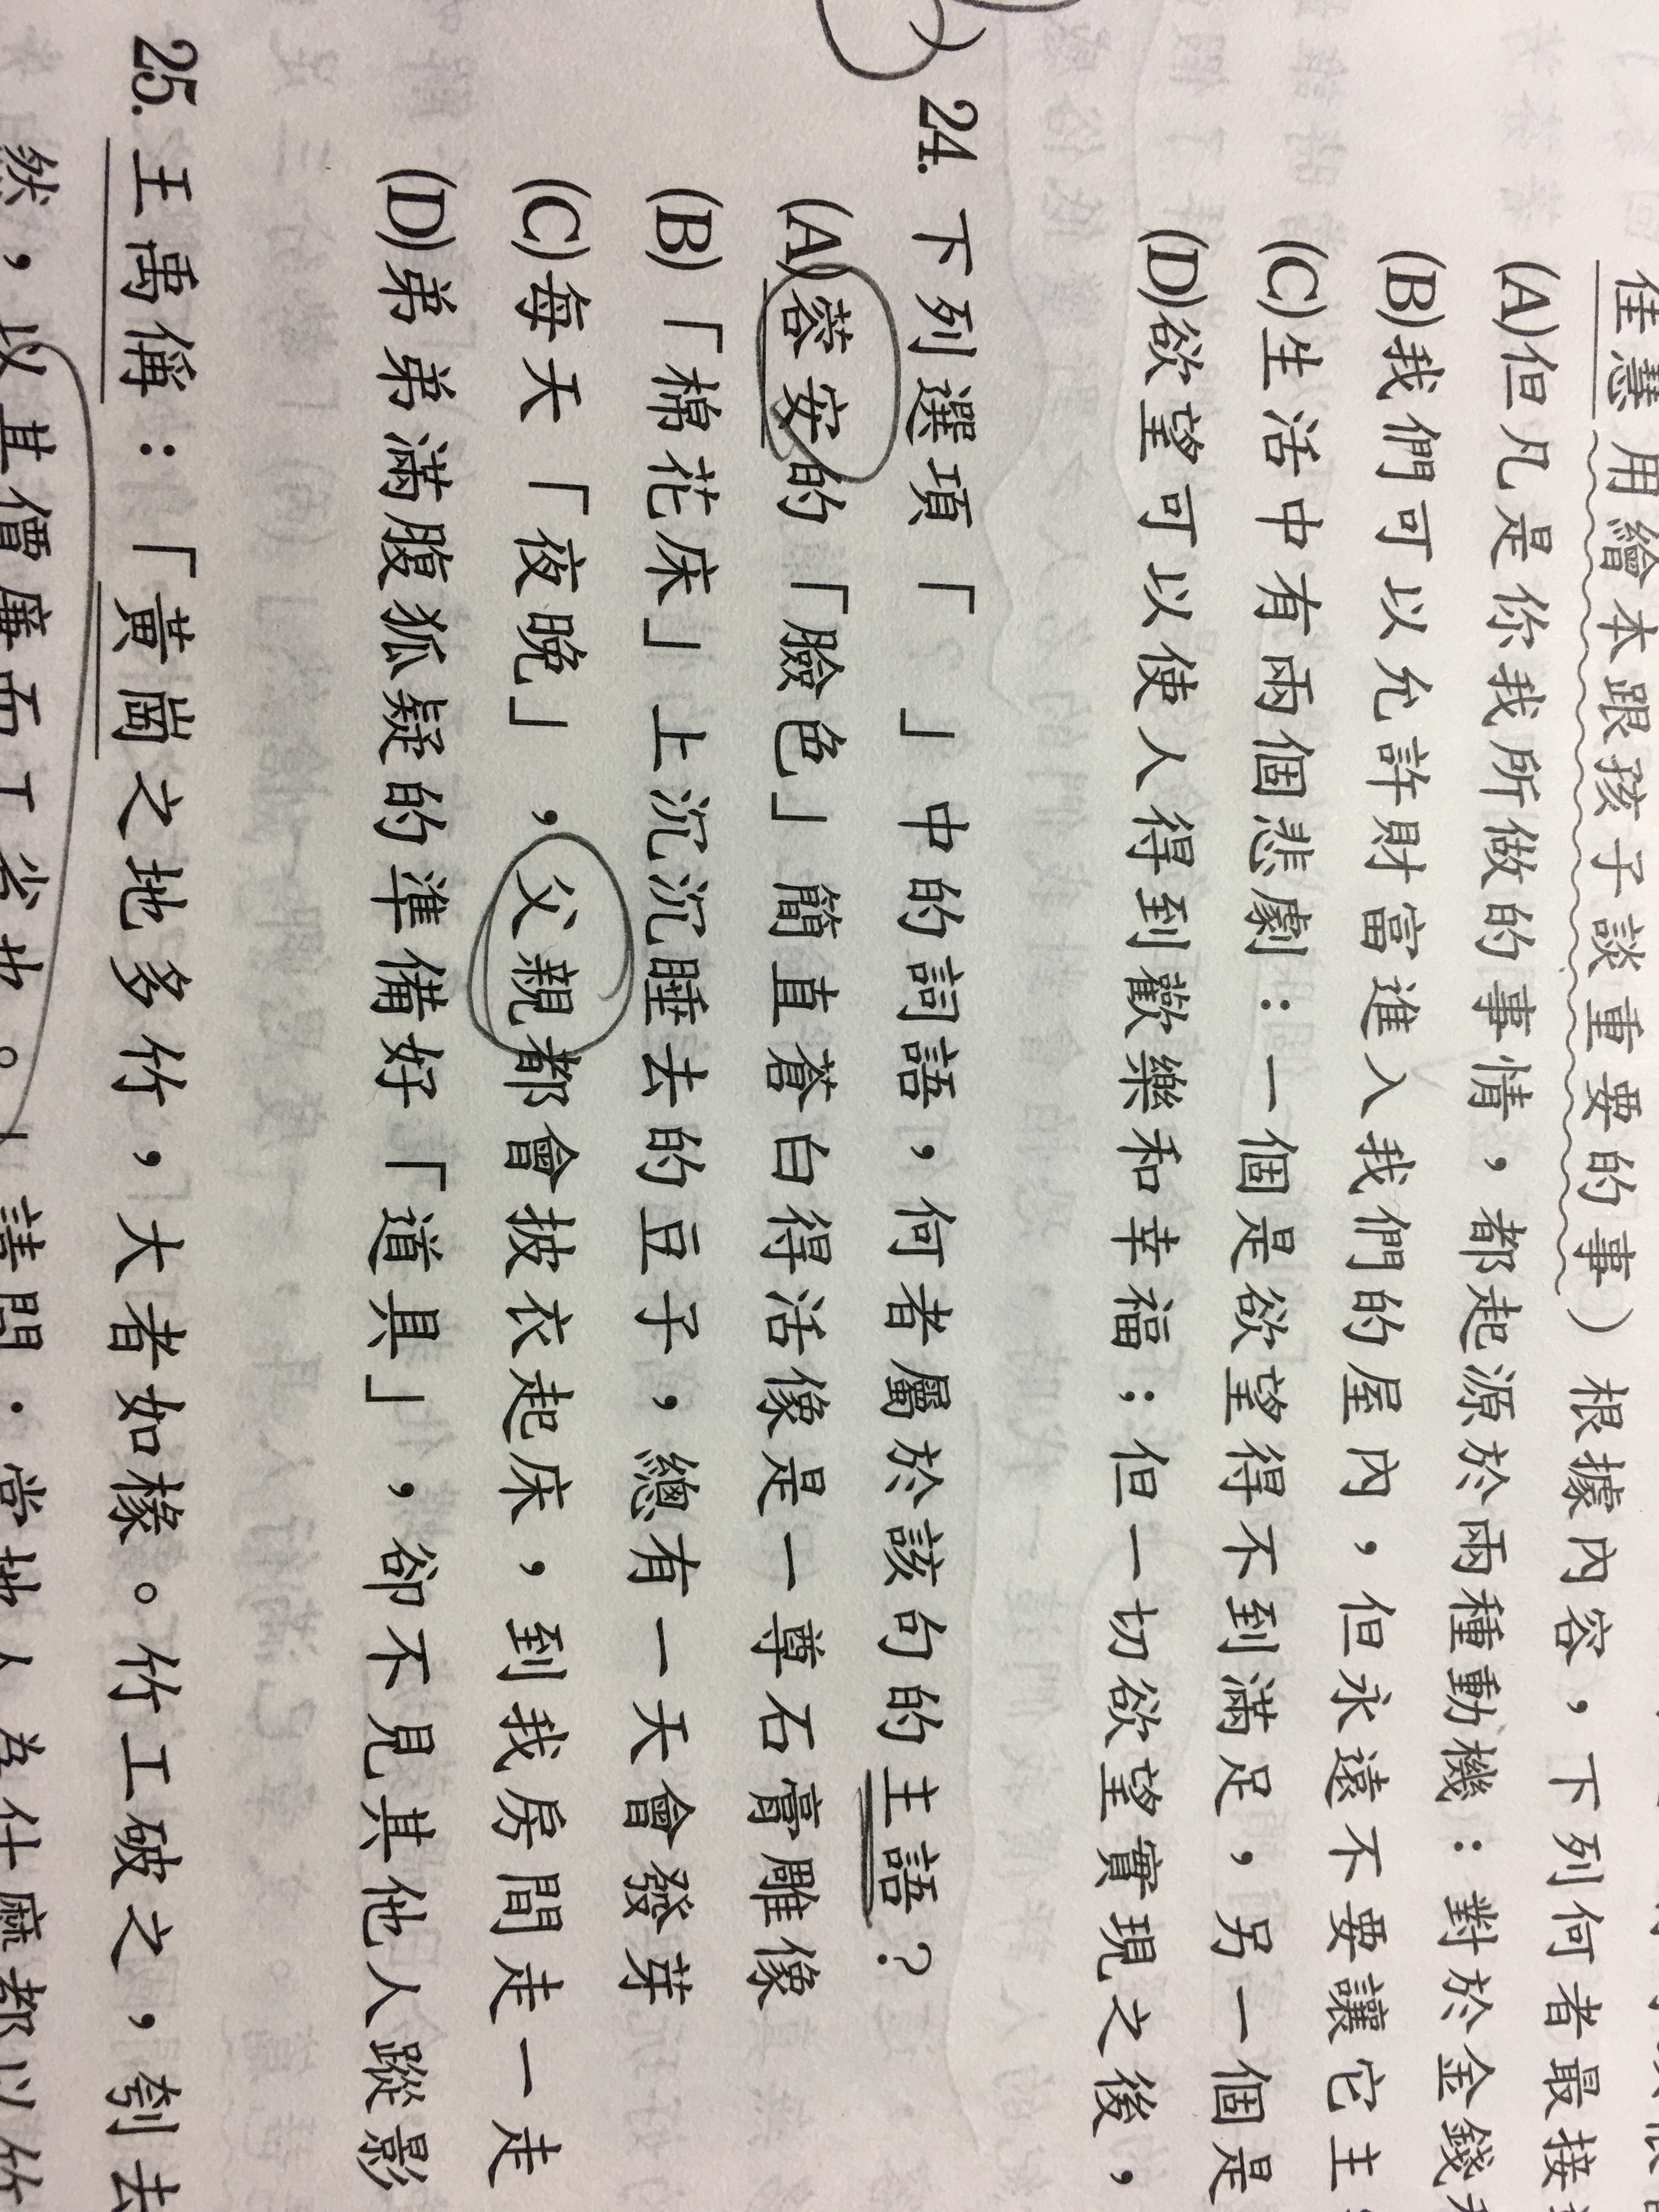 佳慧用繪本跟孩子談重要的事）根據內容，下列何者最接
(A)但凡是你我所做的事情，都起源於兩種動機：對於金錢
(B)我們可以允許財富進入我們的屋內，但永遠不要讓它主
(C)生活中有兩個悲劇：一個是欲望得不到滿足，另一個是
(D)欲望可以使人得到歡樂和幸福；但一切欲望實現之後，
)24.下列選項「　」中的詞語，何者屬於該句的主語？
(A)蓉安的「臉色」簡直蒼白得活像是一尊石膏雕像
(B)「棉花床」上沉沉睡去的豆子，總有一天會發芽
(C)每天「夜晚」，父親都會披衣起床，到我房間走一走
(D)弟弟滿腹狐疑的準備好「道具」，卻不見其他人蹤影
25.王禹偁：「黃崗之地多竹，大者如椽。竹工破之，刳去
然，以其價廉而工省也。」請問：當地人為什麼都以竹